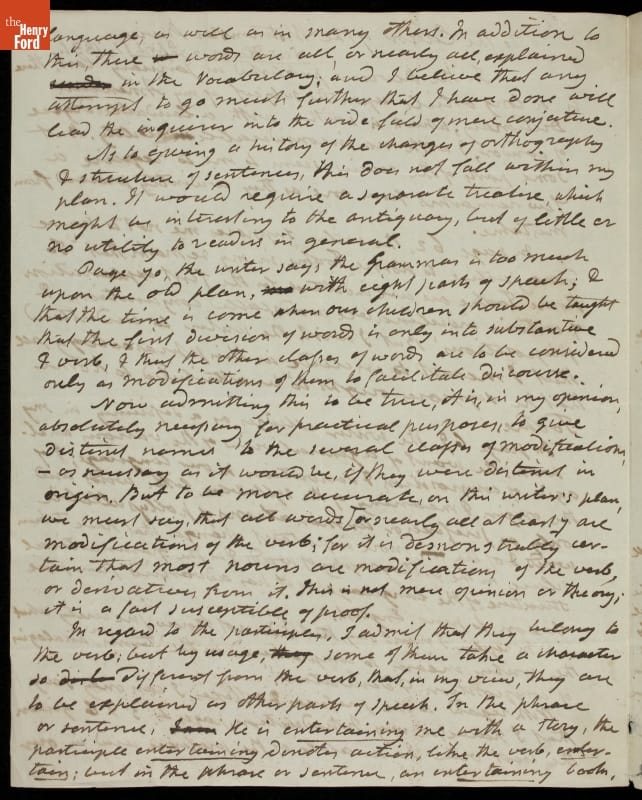 the
Henry
Ford
language, as well as in many others. In addition to
this, there words are all, or nearly all, explained
in the Vocabulary; and I believe that any
attempt to go much further that I have done will
lead the inquirer into the wide field of mere conjecture.
As to giving a history of the changes of orthography
& structure of sentences, this does not fall within my
plan. It would require a separate treatise, which
might be interesting to the antiquary, but of little or
no utility to readers in general.
Page 70, the writer says the Grammar is too much
upon the old plan, with eight parts of speech; &
that the time is come when our children should be taught
that the first division of words is only into substantive
& verb, & that the other classes of words are to be considered
only as modifications of them to facilitate discourse.
Now admitting this to be true, it is, in my opinion,
absolutely necessary for practical purposes, to give
distinct names to the several classes of modifications,
– as necessary as it would be, if they were distinct in
origin. But to be more accurate, on this writer's plan,
we must say, that all words [or nearly all at least] are
modifications of the verb; for it is demonstrably cer-
tain that most nouns are modifications of the verb,
or derivatives from it. This is not mere opinion or theory;
it is a fact susceptible of proof.
In regard to the participles, I admit that they belong to
the verb; but by usage, they some of them take a character
so different from the verb, that, in my view, they are
to be explained as other parts of speech. In the phrase
or sentence, He is entertaining me with a story, the
participle entertaining denotes action, like the verb, enter-
tain; but in the phrase or sentence, an entertaining book,